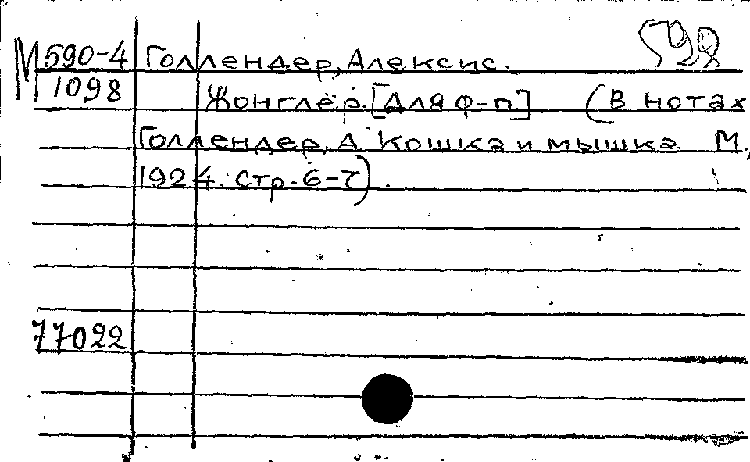 М 590-4 Голлендер, Алексис. 598
1098 Жонглер. [Для ф-п] (В нотах
Голлендер, А Кошка и мышка М,
1924. Стр. 6-7).
77022